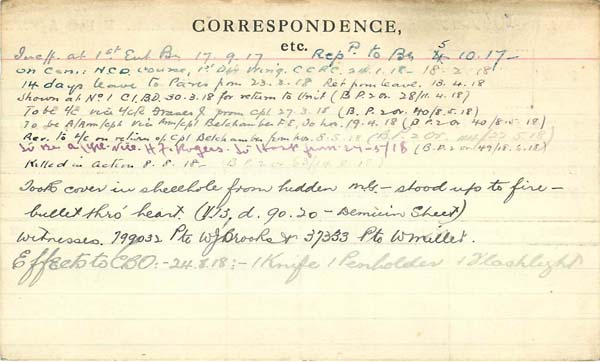 CORRESPONDENCE,
etc.
Ineff. at 1st Ent Bn 17.9.17 Rep'd. to Bn 5 10.17—
on Can: N.C.O. course, 1st Div Wing. C.C.R.C. 24.1.18— 18.2.18
14 days leave to Paris from 23.3.18 Ret from leave. 13.4.18
Shown at No 1 C.I.B.D. 30.3.18 for return to Unit (B.P.2 or. 28/11.4.18)
To be 4/c vice from Cpl 27.3.18 (B.P.2 or. 40/8.5.18)
To be A/ Cpl vice Cpl Belcham 19.4.18 (B.P.2 or 40/8.5.18)
Rev. to 4/c on return of Cpl Belcham from hos. 8.5.18 (B P 2 or. 5.18)
To be a/ vice. H.F. Rogers. To from 27-5/18 (B.P.2 or/49/18.6.18)
Killed in Action 8.8.18— B.P.2 or
Took cover in shellhole from hidden m.g.— stood up to fire—
bullet thro' heart. (V.13, d. 90.20— Demuin Sheet)
Witnesses. 799032 Pte WJ Brooks & 37333 Pte W Millet.
Effects to CBO:-24.8.18:- 1 Knife 1 Penholder 1 Flashlight